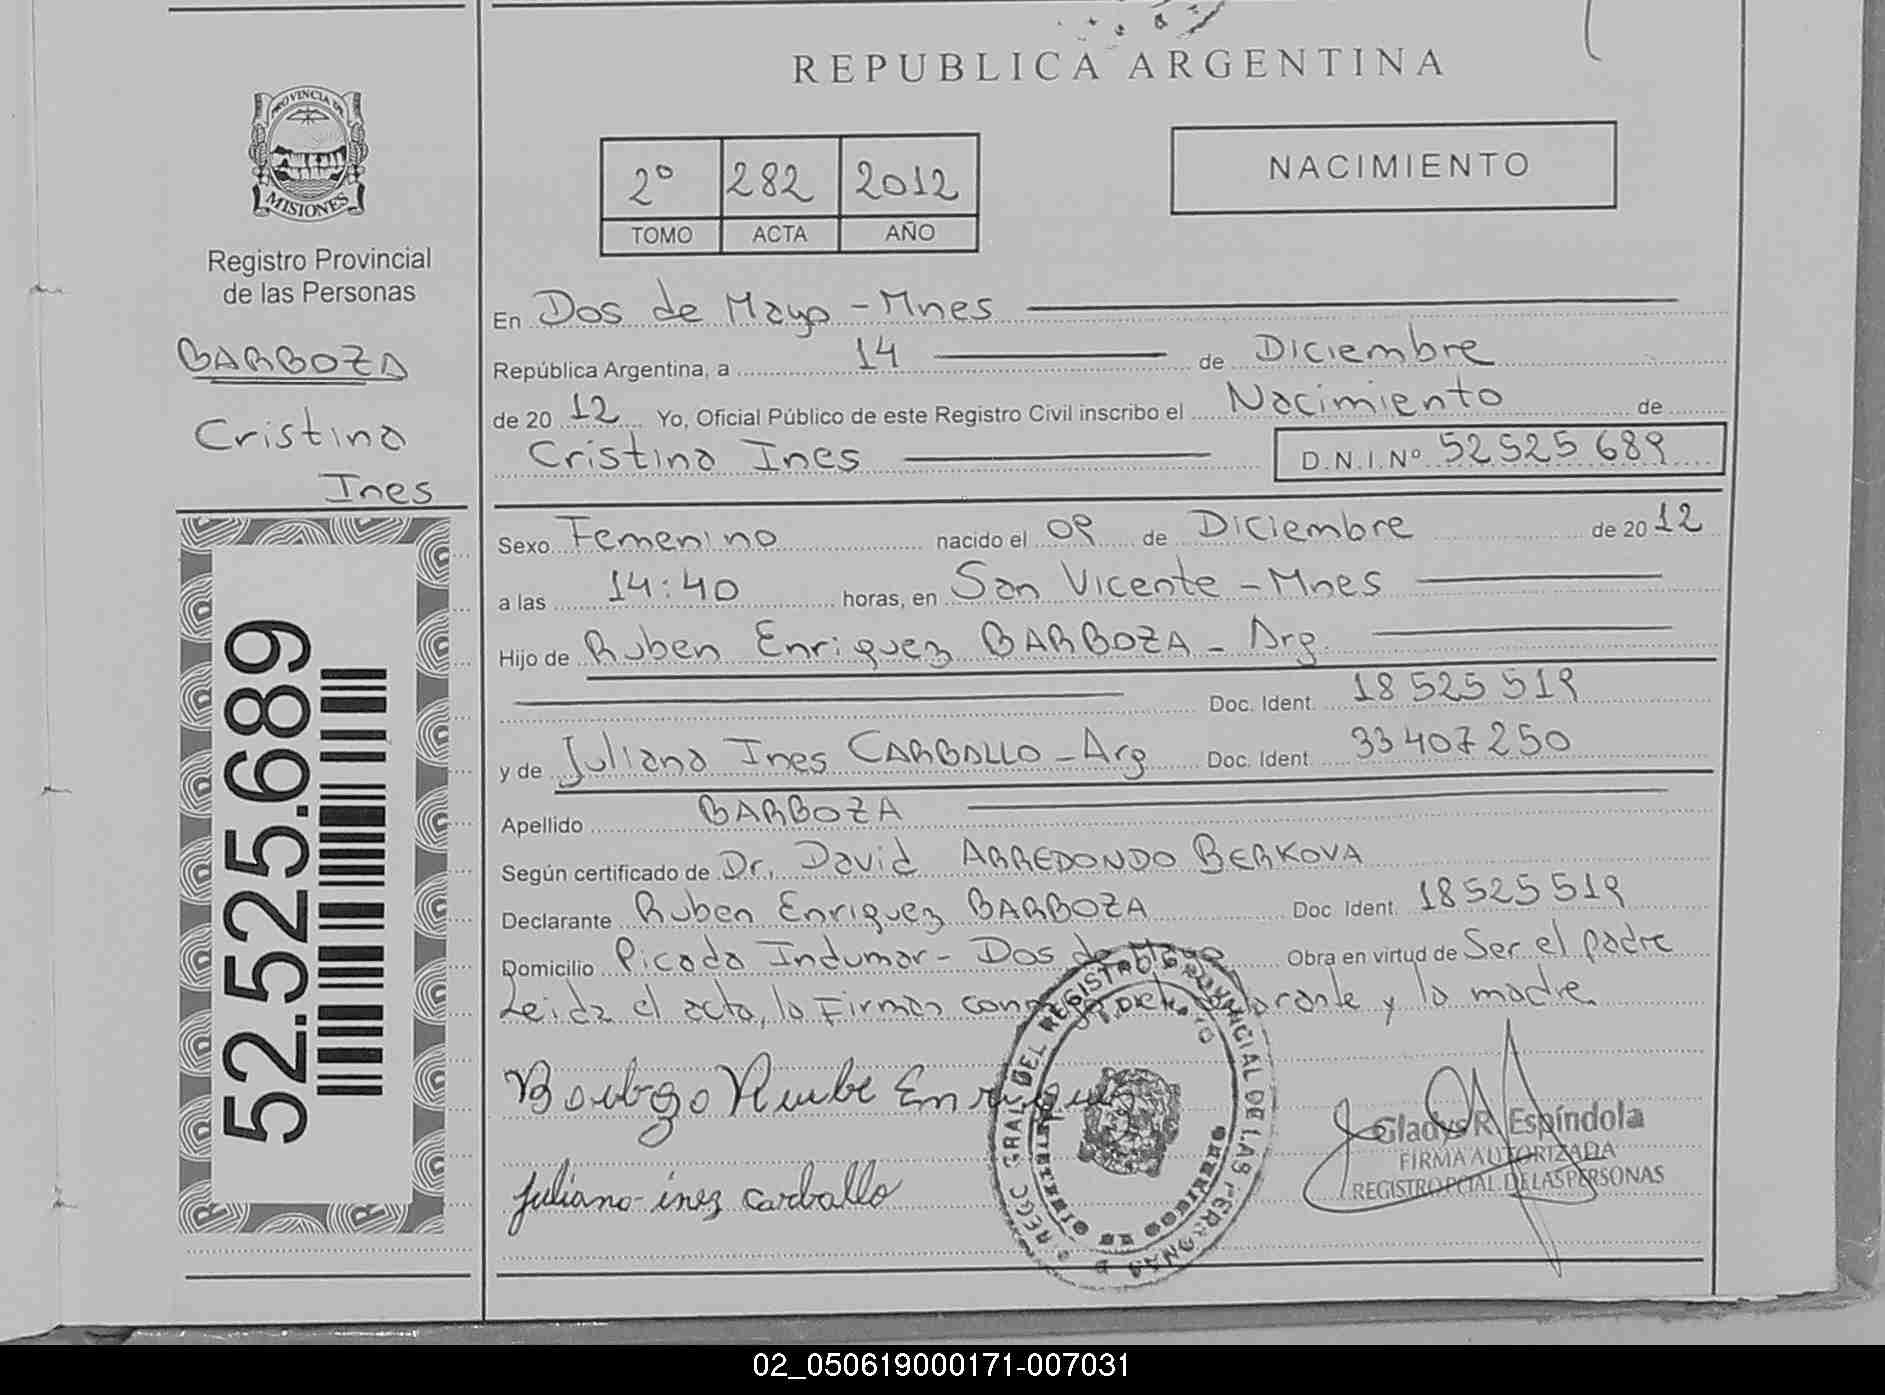 REPUBLICA ARGENTINA
PROVINCIA DE
MISIONES
Registro Provincial
de las Personas
BARBOZA
Cristina
Ines
52.525.689
2º 282 2012
TOMO ACTA AÑO
NACIMIENTO
En Dos de Mayo - Mnes
República Argentina, a 14 de Diciembre
de 20 12 Yo, Oficial Público de este Registro Civil inscribo el Nacimiento de
Cristina Ines D.N.I.Nº 52 525 689
Sexo Femenino nacido el 09 de Diciembre de 20 12
a las 14:40 horas, en San Vicente - Mnes
Hijo de Ruben Enriquez BARBOZA - Arg.
Doc. Ident. 18 525 519
y de Juliana Ines CARBALLO - Arg Doc. Ident. 33 407 250
Apellido BARBOZA
Según certificado de Dr. David ARREDONDO BERKOVA
Declarante Ruben Enriquez BARBOZA Doc. Ident. 18525519
Domicilio Picada Indumar - Dos de Mayo Obra en virtud de Ser el padre
Leida el acta, la Firman y la madre.
Enriquez
juliana ines carballo
Gladys R. Espíndola
FIRMA AUTORIZADA
REGISTRO PCIAL. DE LAS PERSONAS
REGISTRO PROVINCIAL DE LAS PERSONAS
02_050619000171-007031